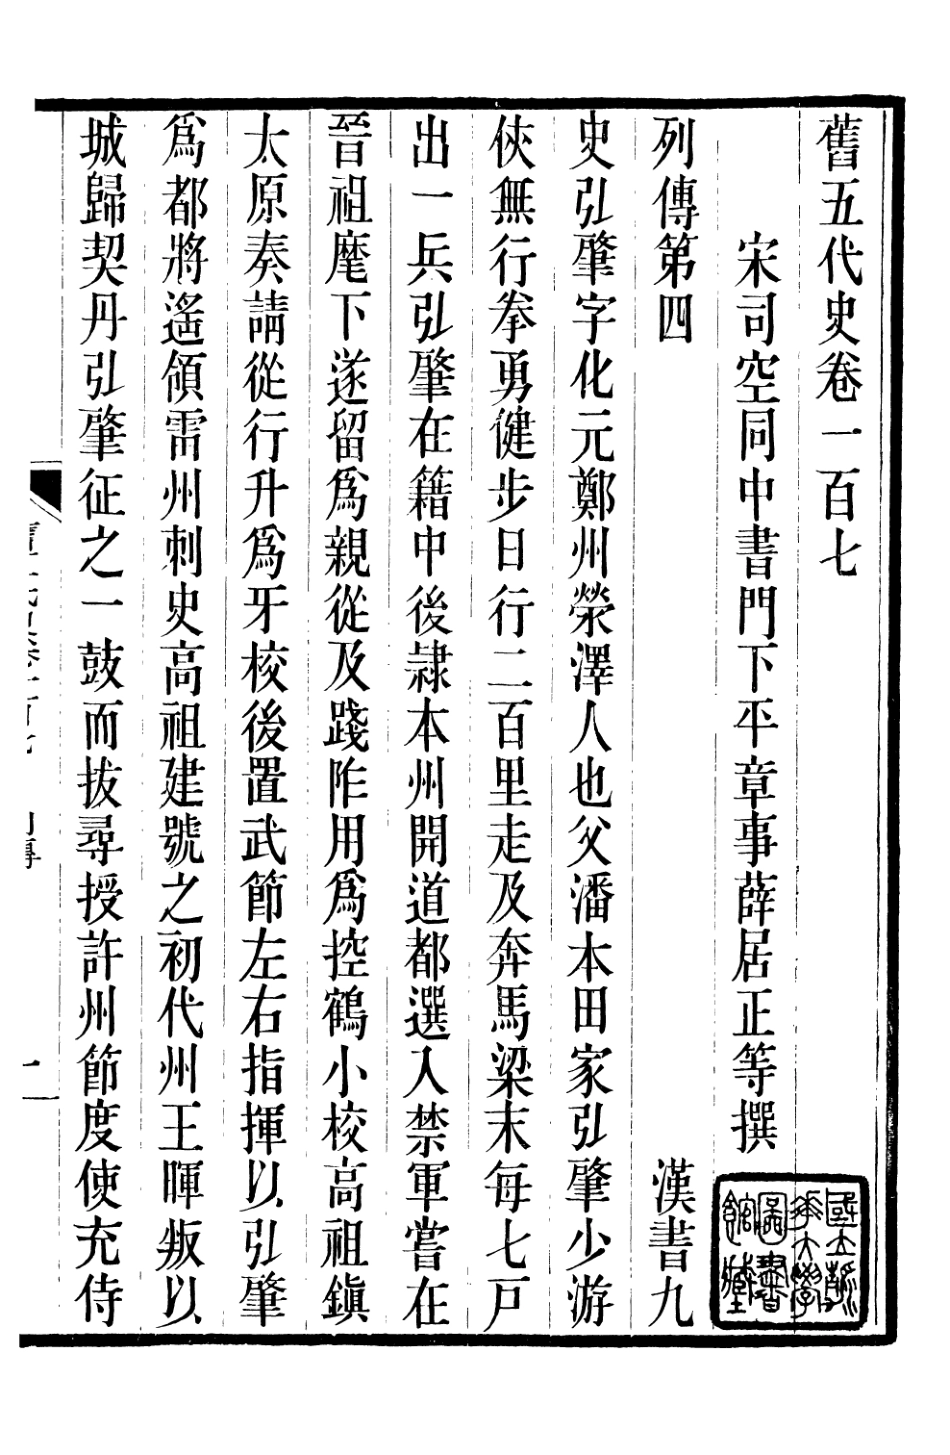 舊五代史卷一百七
宋司空同中書門下平章事薛居正等撰
列傳第四 漢書九
史弘肇字化元鄭州滎澤人也父潘本田家弘肇少游
俠無行拳勇健步日行二百里走及奔馬梁末每七戸
出一兵弘肇在籍中後隷本州開道都選入禁軍嘗在
晉祖麾下遂留爲親從及踐阼用爲控鶴小校高祖鎭
太原奏請從行升爲牙校後置武節左右指揮以弘肇
爲都將遙領雷州刺史高祖建號之初代州王暉叛以
城歸契丹弘肇征之一鼓而拔尋授許州節度使充侍